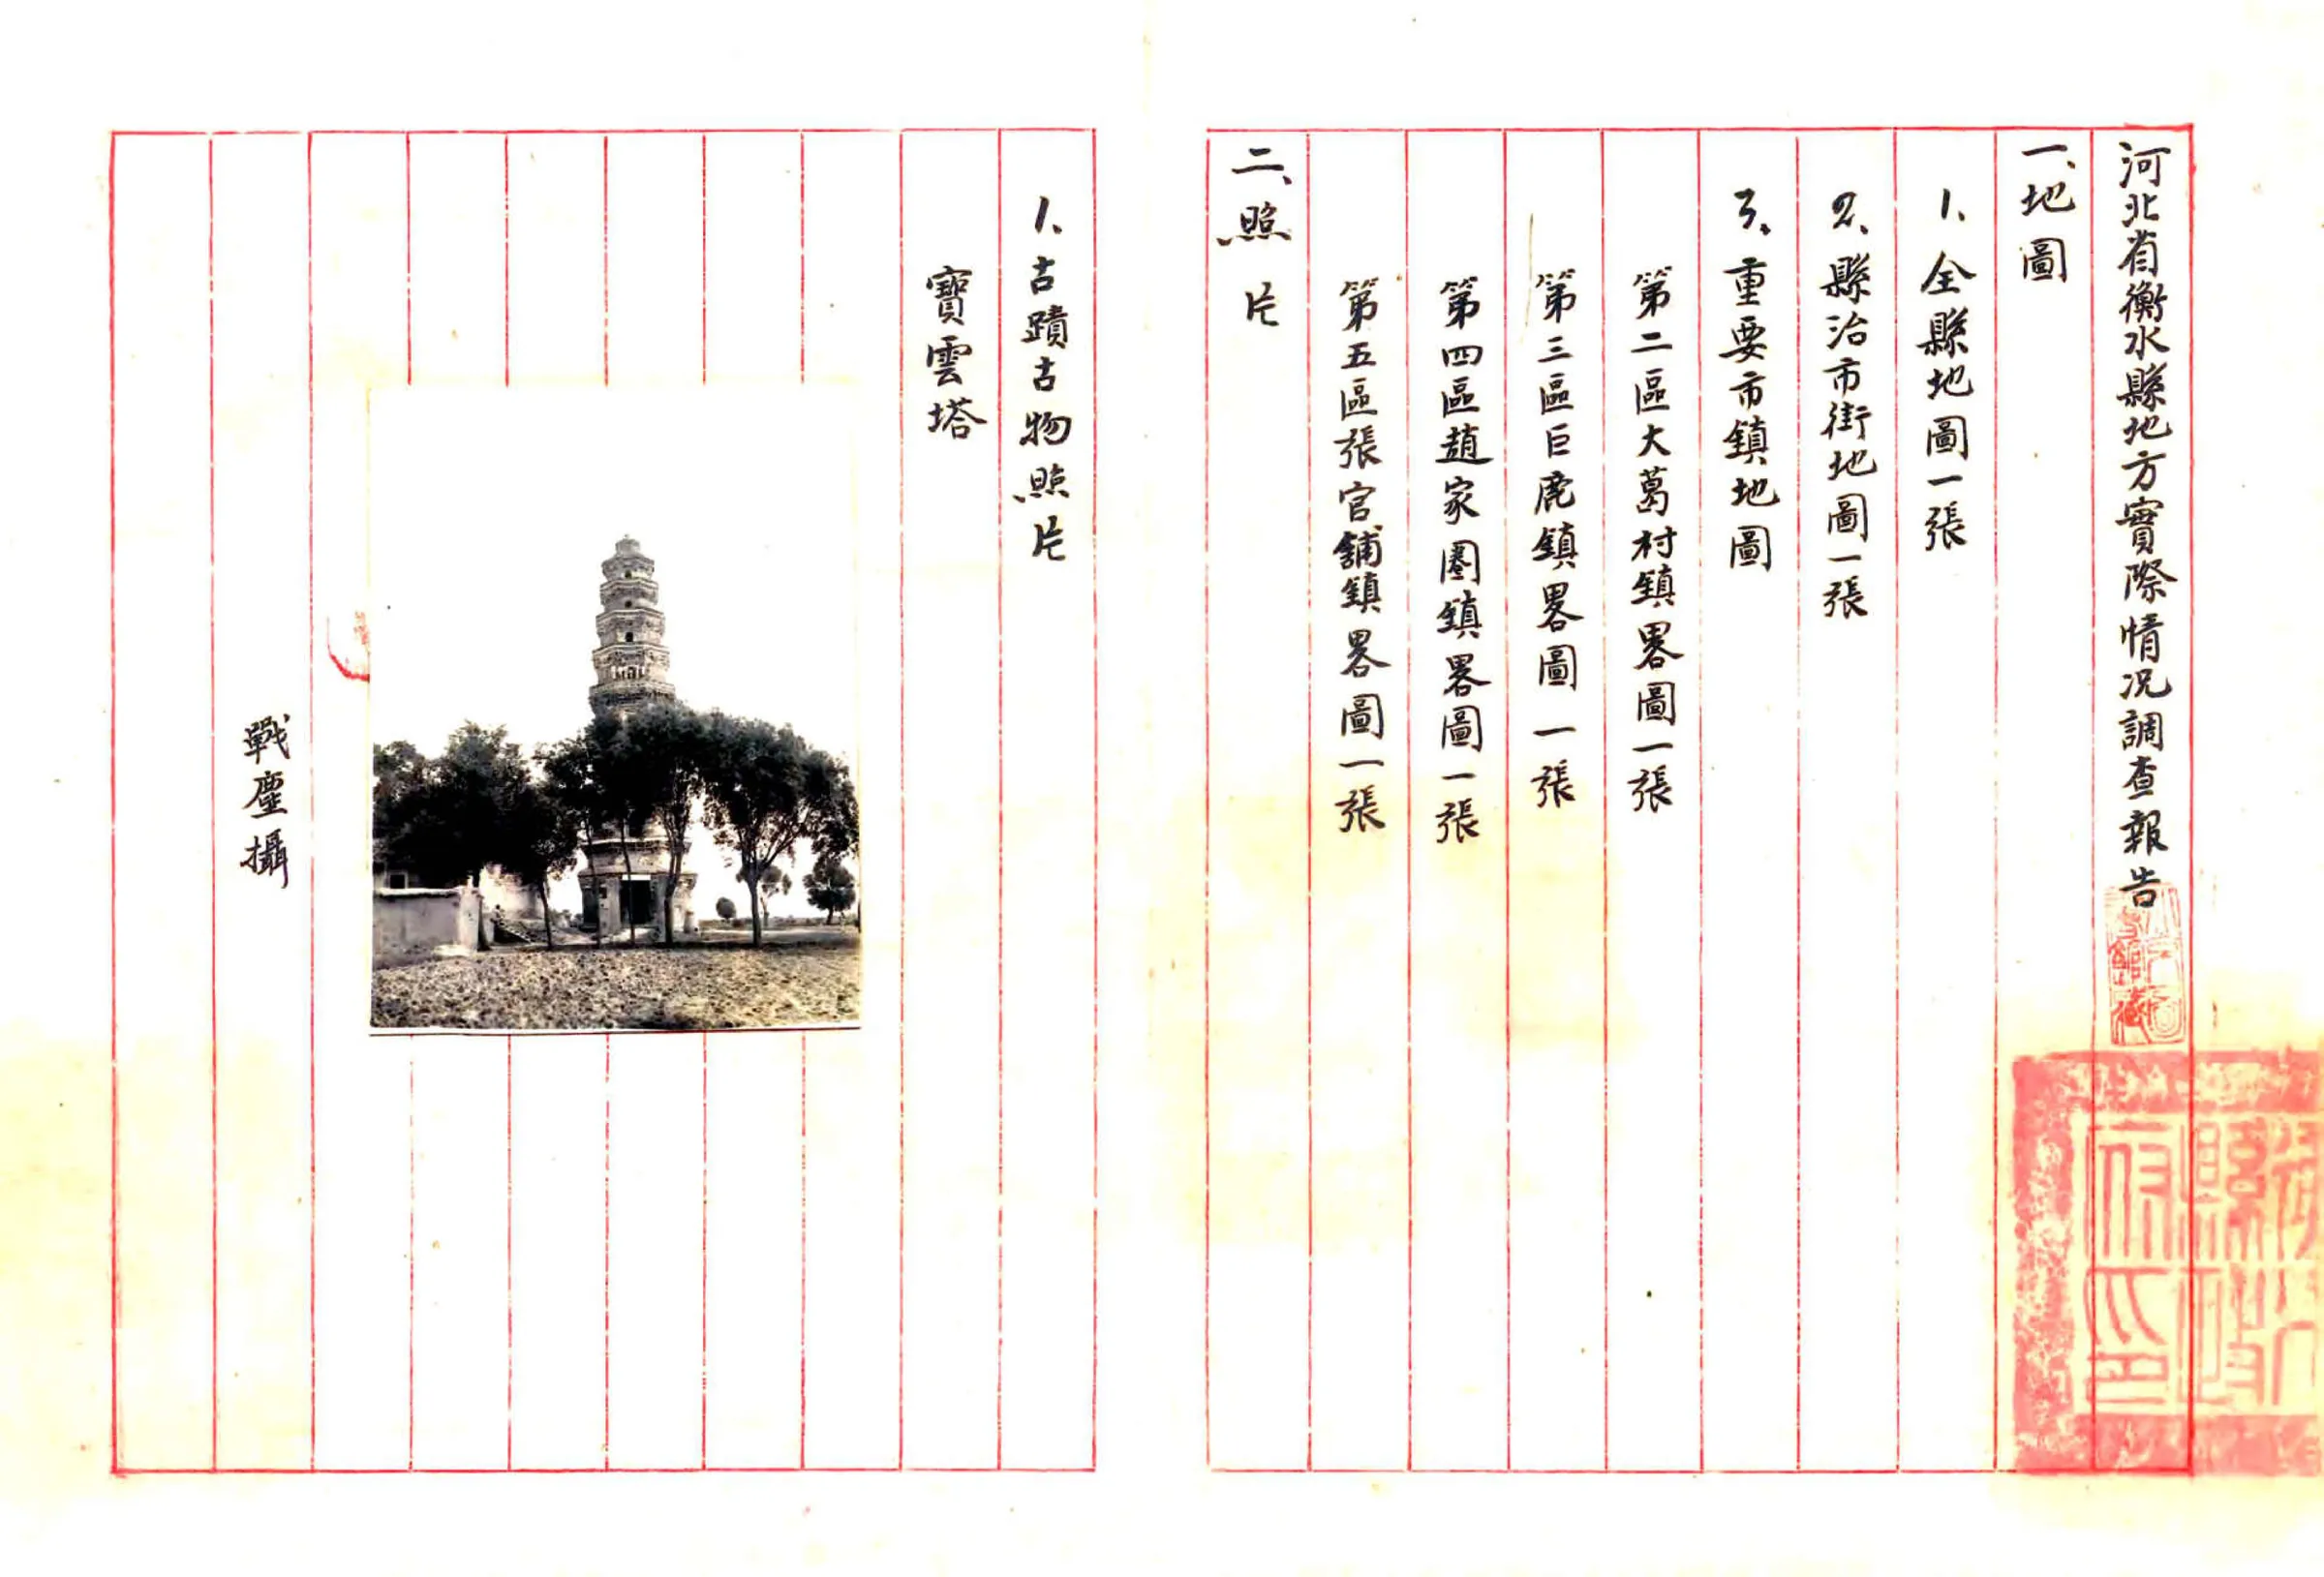 河北省衡水縣地方實際情况調查報告
一、地圖
1、全縣地圖一張
2、縣治市街地圖一張
3、重要市鎮地圖
第二區大葛村鎮畧圖一張
第三區巨鹿鎮畧圖一張
第四區趙家圈鎮畧圖一張
第五區張官舖鎮畧圖一張
二、照片
1、古蹟古物照片
寶雲塔
戰塵攝